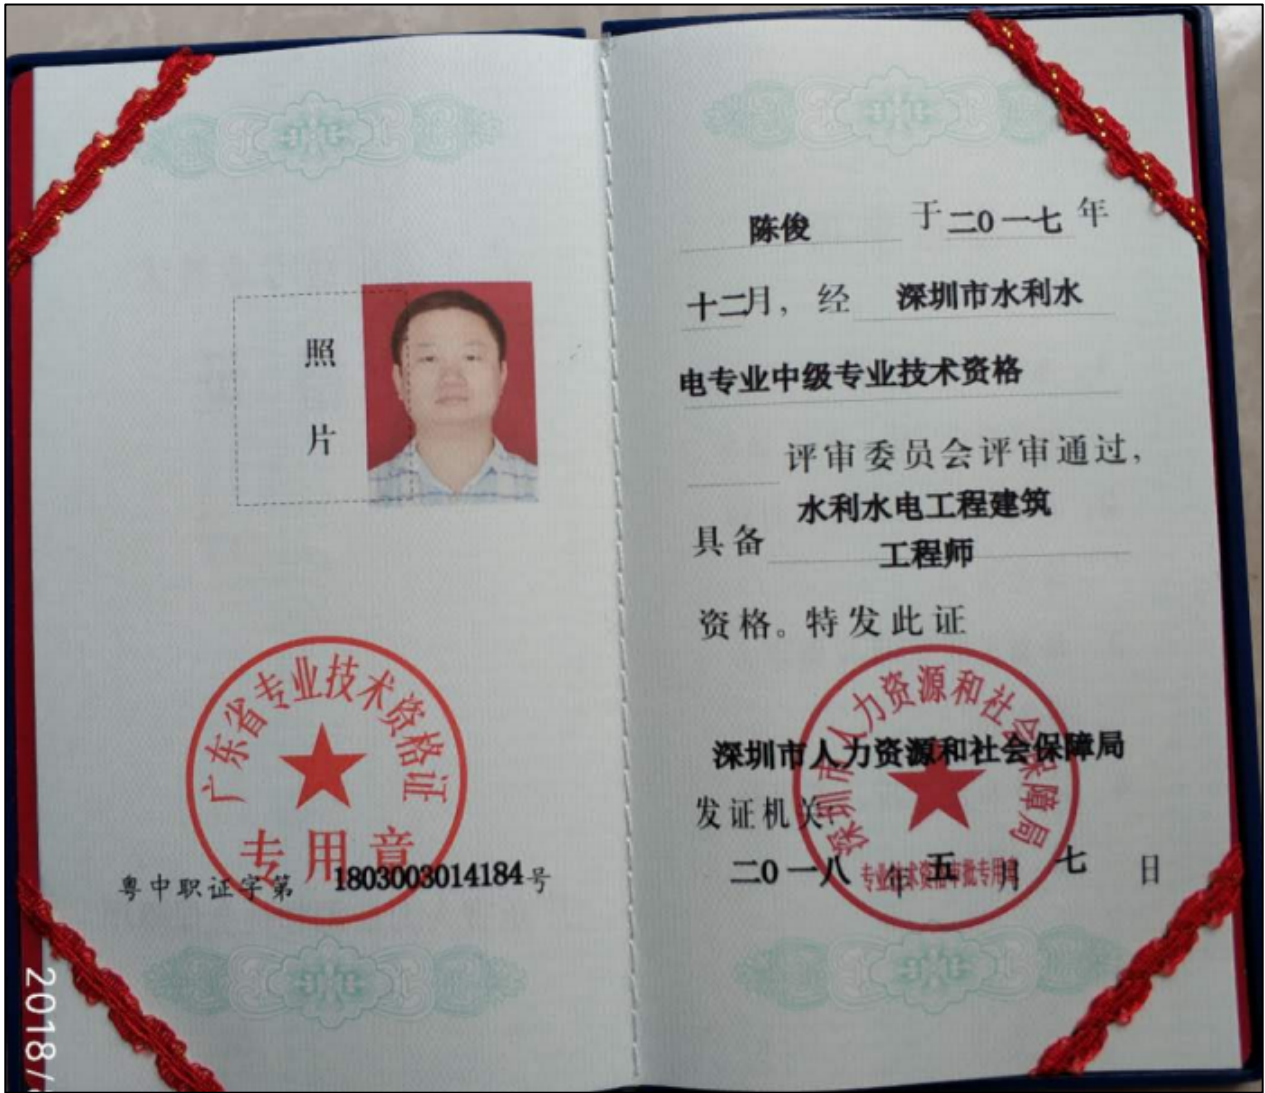 照
片
广东省专业技术资格证
专用章
粤中职证字第 1803003014184 号
陈俊 于 二0一七 年
十二月，经 深圳市水利水
电专业中级专业技术资格
评审委员会评审通过，
具备 水利水电工程建筑
工程师
资格。特发此证
深圳市人力资源和社会保障局
深圳市人力资源和社会保障局
发证机关：
二0一八 年 五 月 七 日
专业技术资格审批专用章
2018/